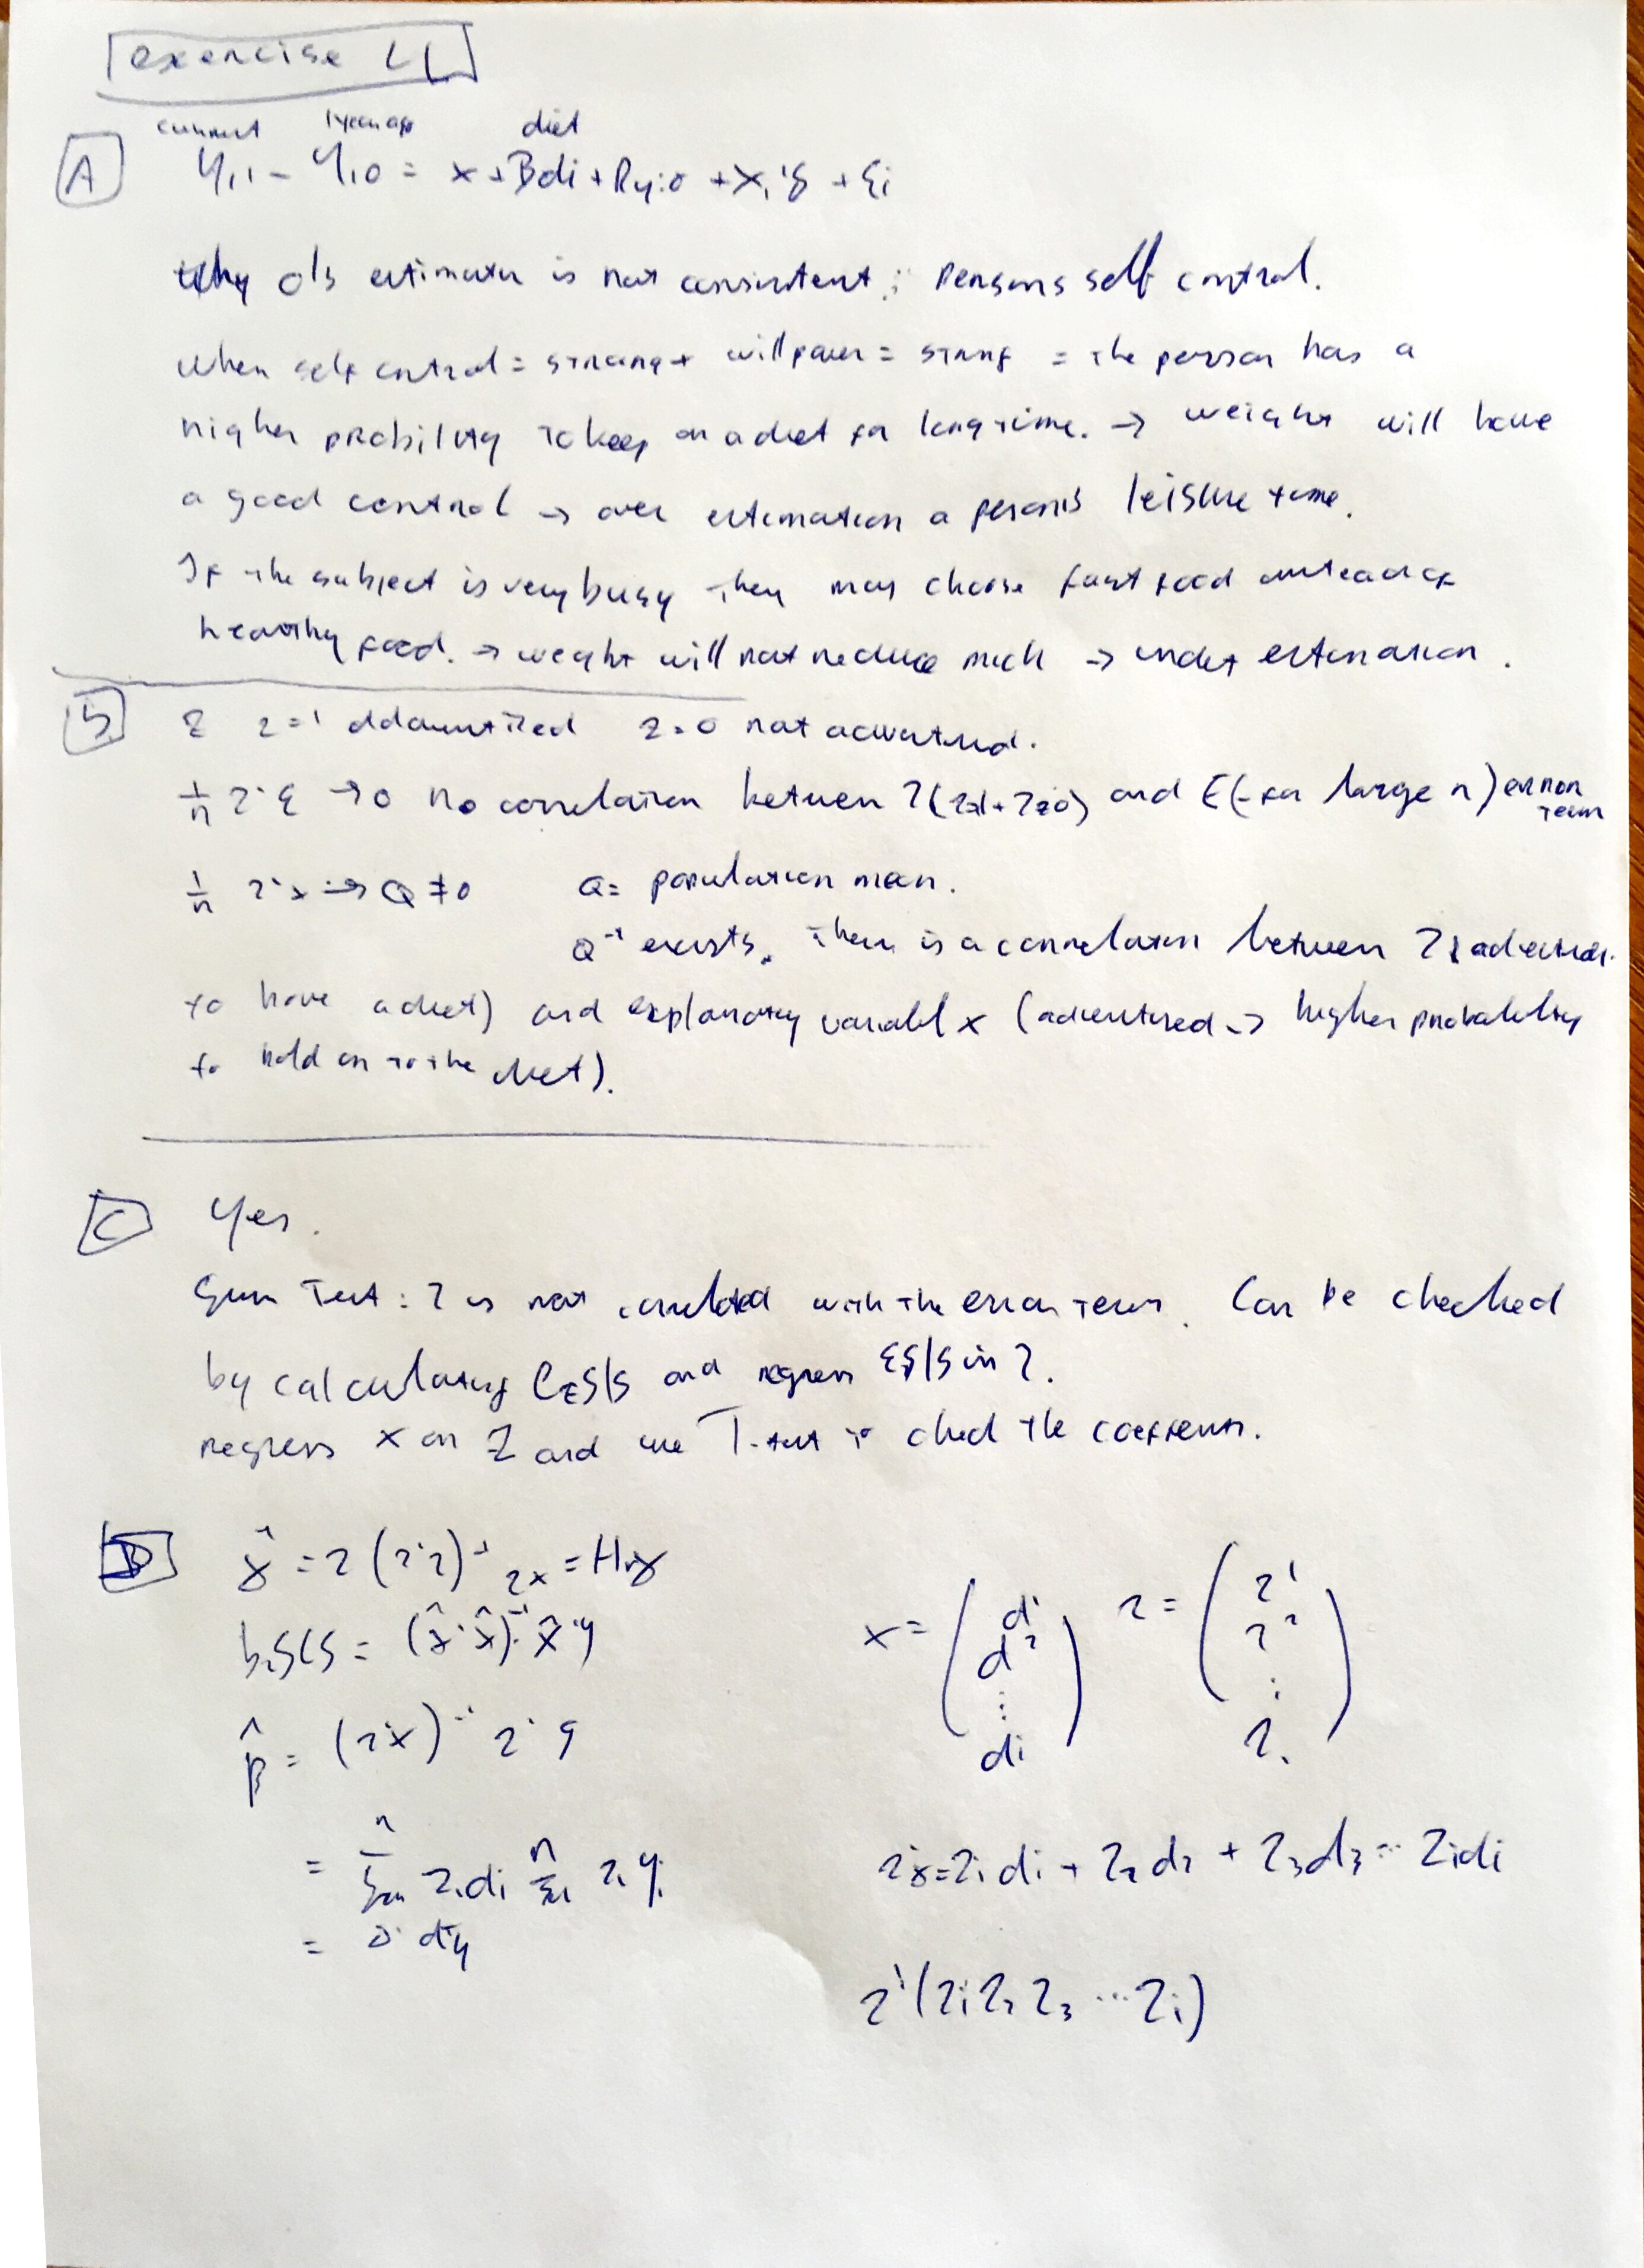 exercise 4
current 1 year ago diet
A Yi1 - Yi0 = x + Bdi + Ryi0 + Xi'γ + εi
Why ols estimator is not consistent: Persons self control.
When self control = strong + willpower = strong = the person has a
higher probility to keep on a diet for long time. → weight will have
a good control → over estimation a person's leisure time.
If the subject is very busy they may choose fast food instead of
healthy food. → weight will not reduce much → under estimation.
B Z z=1 z=0 not advertised.
1/n z'ε → 0 No correlation between Z (z=1 + z=0) and ε (for large n) error term
1/n z'x → Q ≠ 0 Q = population mean.
Q⁻¹ exists. There is a correlation between Z
to have a diet) and explanatory variabl x (advertised → higher probability
to hold on to the diet).
C Yes.
Test: Z is not correlated with the error term. Can be checked
by calculating and regress in Z.
regress x on Z and use T-test to check the
D x̂ = z(z'z)⁻¹ zx = Hzx
b2SLS = (x̂'x̂)⁻¹ x̂'y
β̂ = (z'x)⁻¹ z'y
x = (d1 d2 ⋮ di) z = (z1 z2 ⋮ zi)
= Σ zidi Σ ziyi
z'x = z1d1 + z2d2 + z3d3 ... zidi
z'(z1 z2 z3 ... zi)